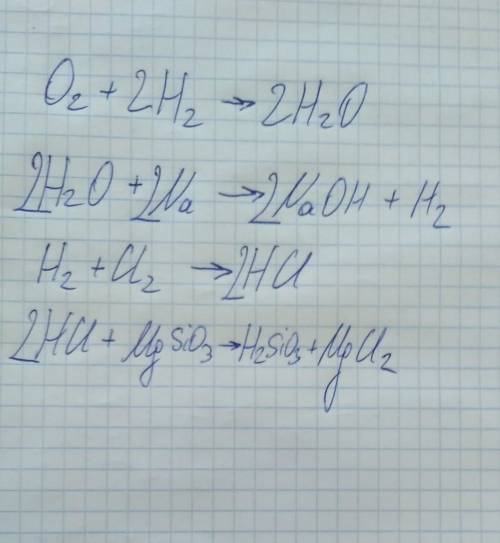 O₂ + 2H₂ → 2H₂O
2H₂O + 2Na → 2NaOH + H₂
H₂ + Cl₂ → 2HCl
2HCl + MgSiO₃ → H₂SiO₃ + MgCl₂